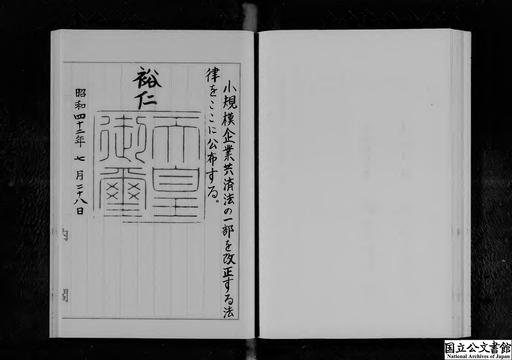 小規模企業共済法の一部を改正する法
律をここに公布する。
裕仁
天皇
御璽
昭和四十二年七月二十八日
内閣
国立公文書館
National Archives of Japan